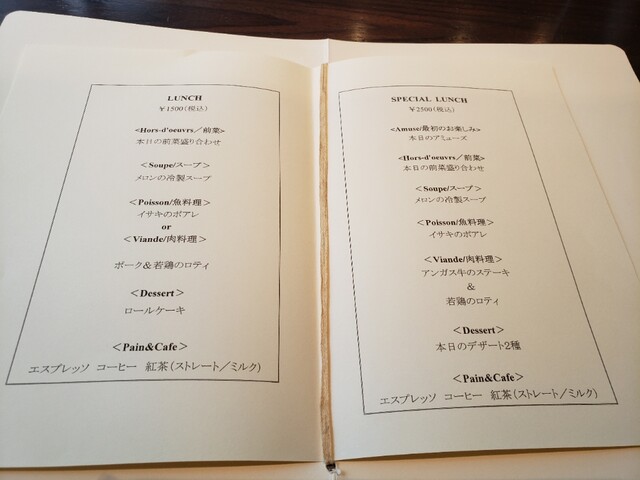 LUNCH
￥1500(税込)
<Hors-d'oeuvrs／前菜>
本日の前菜盛り合わせ
＜Soupe/スープ＞
メロンの冷製スープ
＜Poisson/魚料理＞
イサキのポアレ
or
＜Viande/肉料理＞
ポーク＆若鶏のロティ
＜Dessert＞
ロールケーキ
＜Pain&Cafe＞
エスプレッソ コーヒー 紅茶(ストレート／ミルク)
SPECIAL LUNCH
￥2500(税込)
<Amuse/最初のお楽しみ>
本日のアミューズ
<Hors-d'oeuvrs／前菜>
本日の前菜盛り合わせ
＜Soupe/スープ＞
メロンの冷製スープ
＜Poisson/魚料理＞
イサキのポアレ
＜Viande/肉料理＞
アンガス牛のステーキ
＆
若鶏のロティ
＜Dessert＞
本日のデザート2種
＜Pain&Cafe＞
エスプレッソ コーヒー 紅茶(ストレート／ミルク)